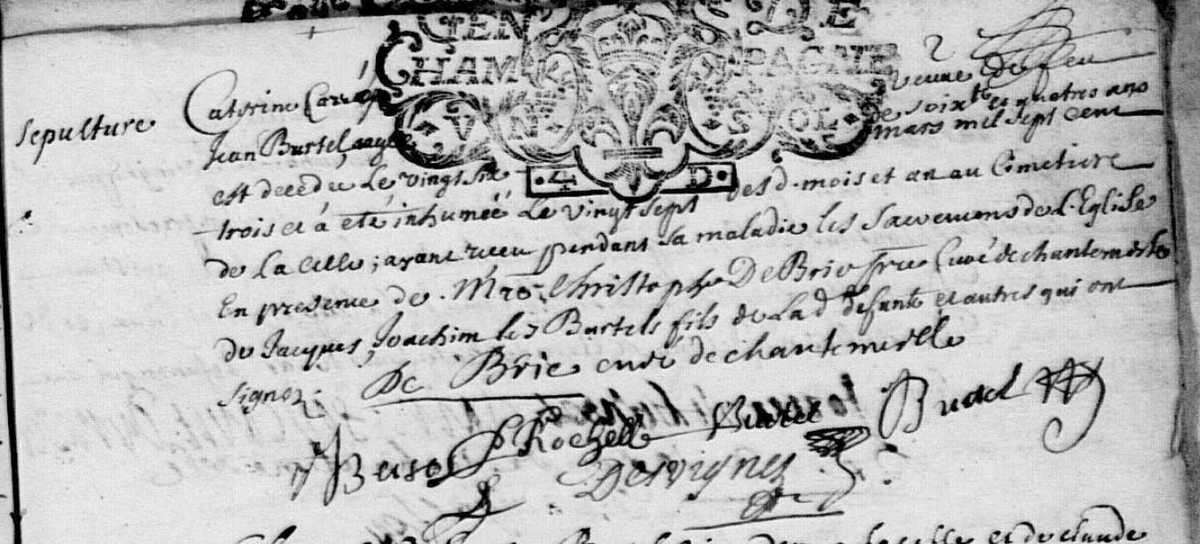 GEN DE
CHAM PAGNE
VN SOL
4 D
2
Sepulture
Caterine veuve de feu
Jean Burtel, aagée de soixte et quatres ans
est decedu le vingt six mars mil sept cent
trois et á eté inhumeé le vingt sept des d. mois et an au Cimetiere
de la celle; ayant receu pendant sa maladie les sacremens de l'Eglise
En presence de Mre Christophe De Brie pre Curé de chantemerle
de Jacques, Joachim les Burtels fils de la d. defunte et autres qui ont
signez.
De Brie curé de chantemerlle
Rochelle
Desvignes